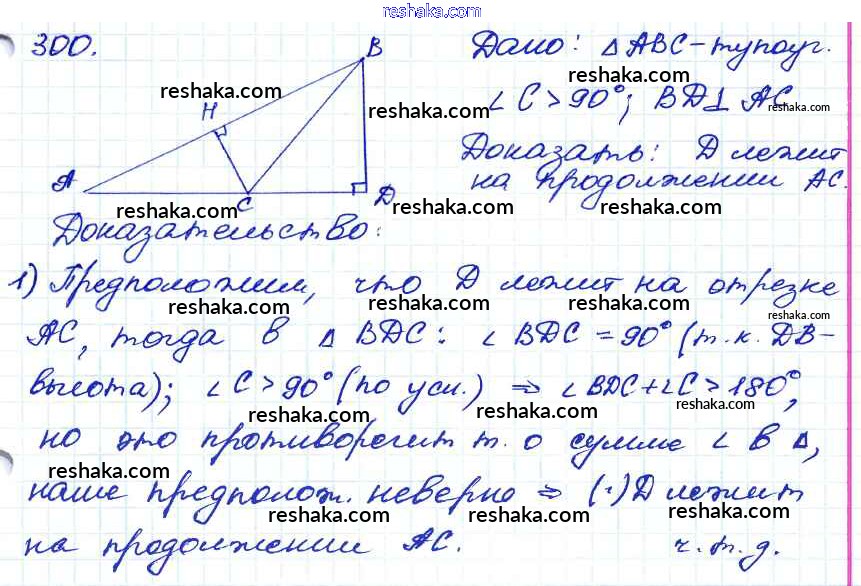 reshaka.com
300.
B
Дано: △ABC – тупоуг.
reshaka.com
reshaka.com
H
reshaka.com
∠C > 90°; BD⊥AC
reshaka.com
Доказать: D лежит
reshaka.com
A
C
D
на продолжении AC.
reshaka.com
reshaka.com
reshaka.com
Доказательство:
1) Предположим, что D лежит на отрезке
reshaka.com
reshaka.com
reshaka.com
reshaka.com
AC, тогда в △ BDC: ∠BDC = 90° (т.к. DB–
высота); ∠C > 90° (по усл.) ⇒ ∠BDC+∠C > 180°,
reshaka.com
reshaka.com
reshaka.com
но это противоречит т. о сумме ∠ в △,
reshaka.com
наше предполож. неверно ⇒ (·) D лежит
reshaka.com
reshaka.com
reshaka.com
на продолжении AC. ч.т.д.